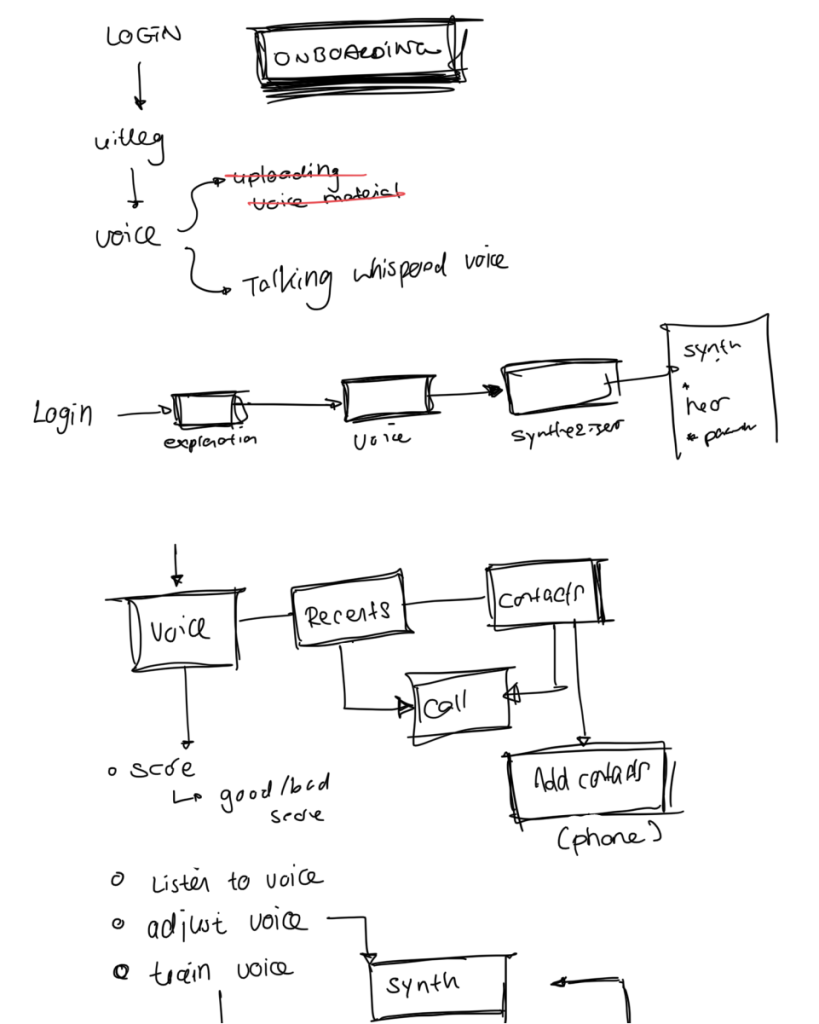 LOGIN
ONBOARDING
uitleg
uploading
voice material
voice
Talking whispered voice
synth
Login
hear
explanation
voice
synthesizer
Voice
Recents
Contacts
Call
score
good/bad
score
Add contacts
(phone)
Listen to voice
adjust voice
train voice
synth